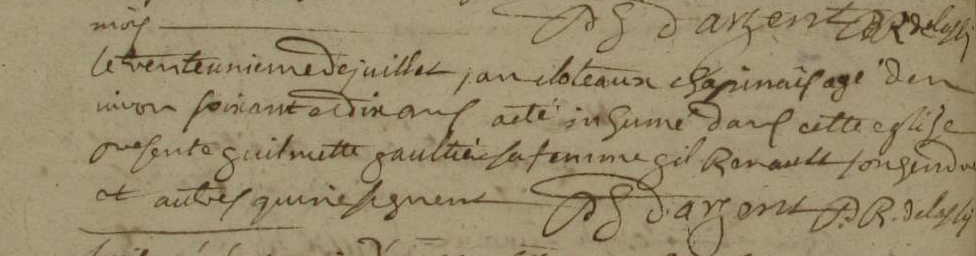 mois D d'argent P. R. delasli
le trenteunieme de juillet jan cloteaux chapinais agé d'en
viron soixante et dix ans a eté inhumé dans cette eglise
presente guilmette gaultier sa femme gil Renault son gendre
et autres qui ne signent D d'argent P. R. delasli